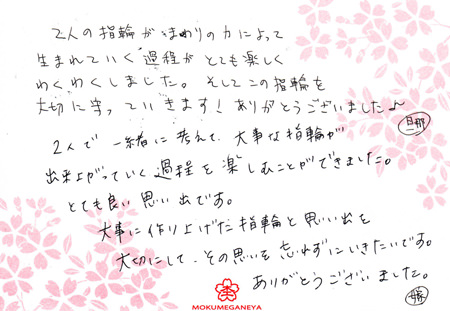 2人の指輪がまわりの力によって
生まれていく過程がとても楽しく
わくわくしました。そしてこの指輪を
大切に守っていきます！ありがとうございました♪
旦那
2人で一緒に考えて、大事な指輪が
出来上がっていく過程を楽しむことができました。
とても良い思い出です。
大事に作り上げた指輪と思い出を
大切にして、その思いを忘れずにいきたいです。
ありがとうございました。
嫁
MOKUMEGANEYA